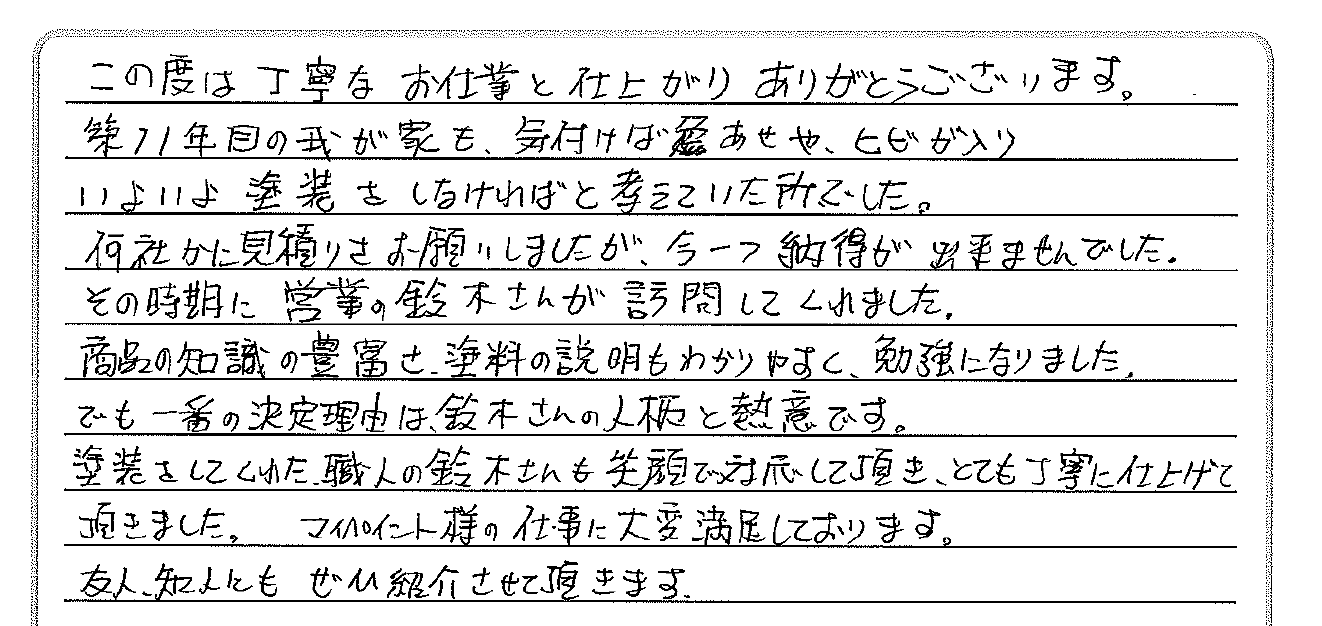 この度は丁寧なお仕事と仕上がりありがとうございます。
築11年目の我が家も、気付けば色あせや、ヒビが入り
いよいよ塗装をしなければと考えていた所でした。
何社かに見積りをお願いしましたが、今一つ納得が出来ませんでした。
その時期に営業の鈴木さんが訪問してくれました。
商品の知識の豊富さ、塗料の説明もわかりやすく、勉強になりました。
でも一番の決定理由は、鈴木さんの人柄と熱意です。
塗装をしてくれた、職人の鈴木さんも笑顔で対応して頂き、とても丁寧に仕上げて
頂きました。 マイペイント様の仕事に大変満足しております。
友人、知人にも ぜひ紹介させて頂きます。